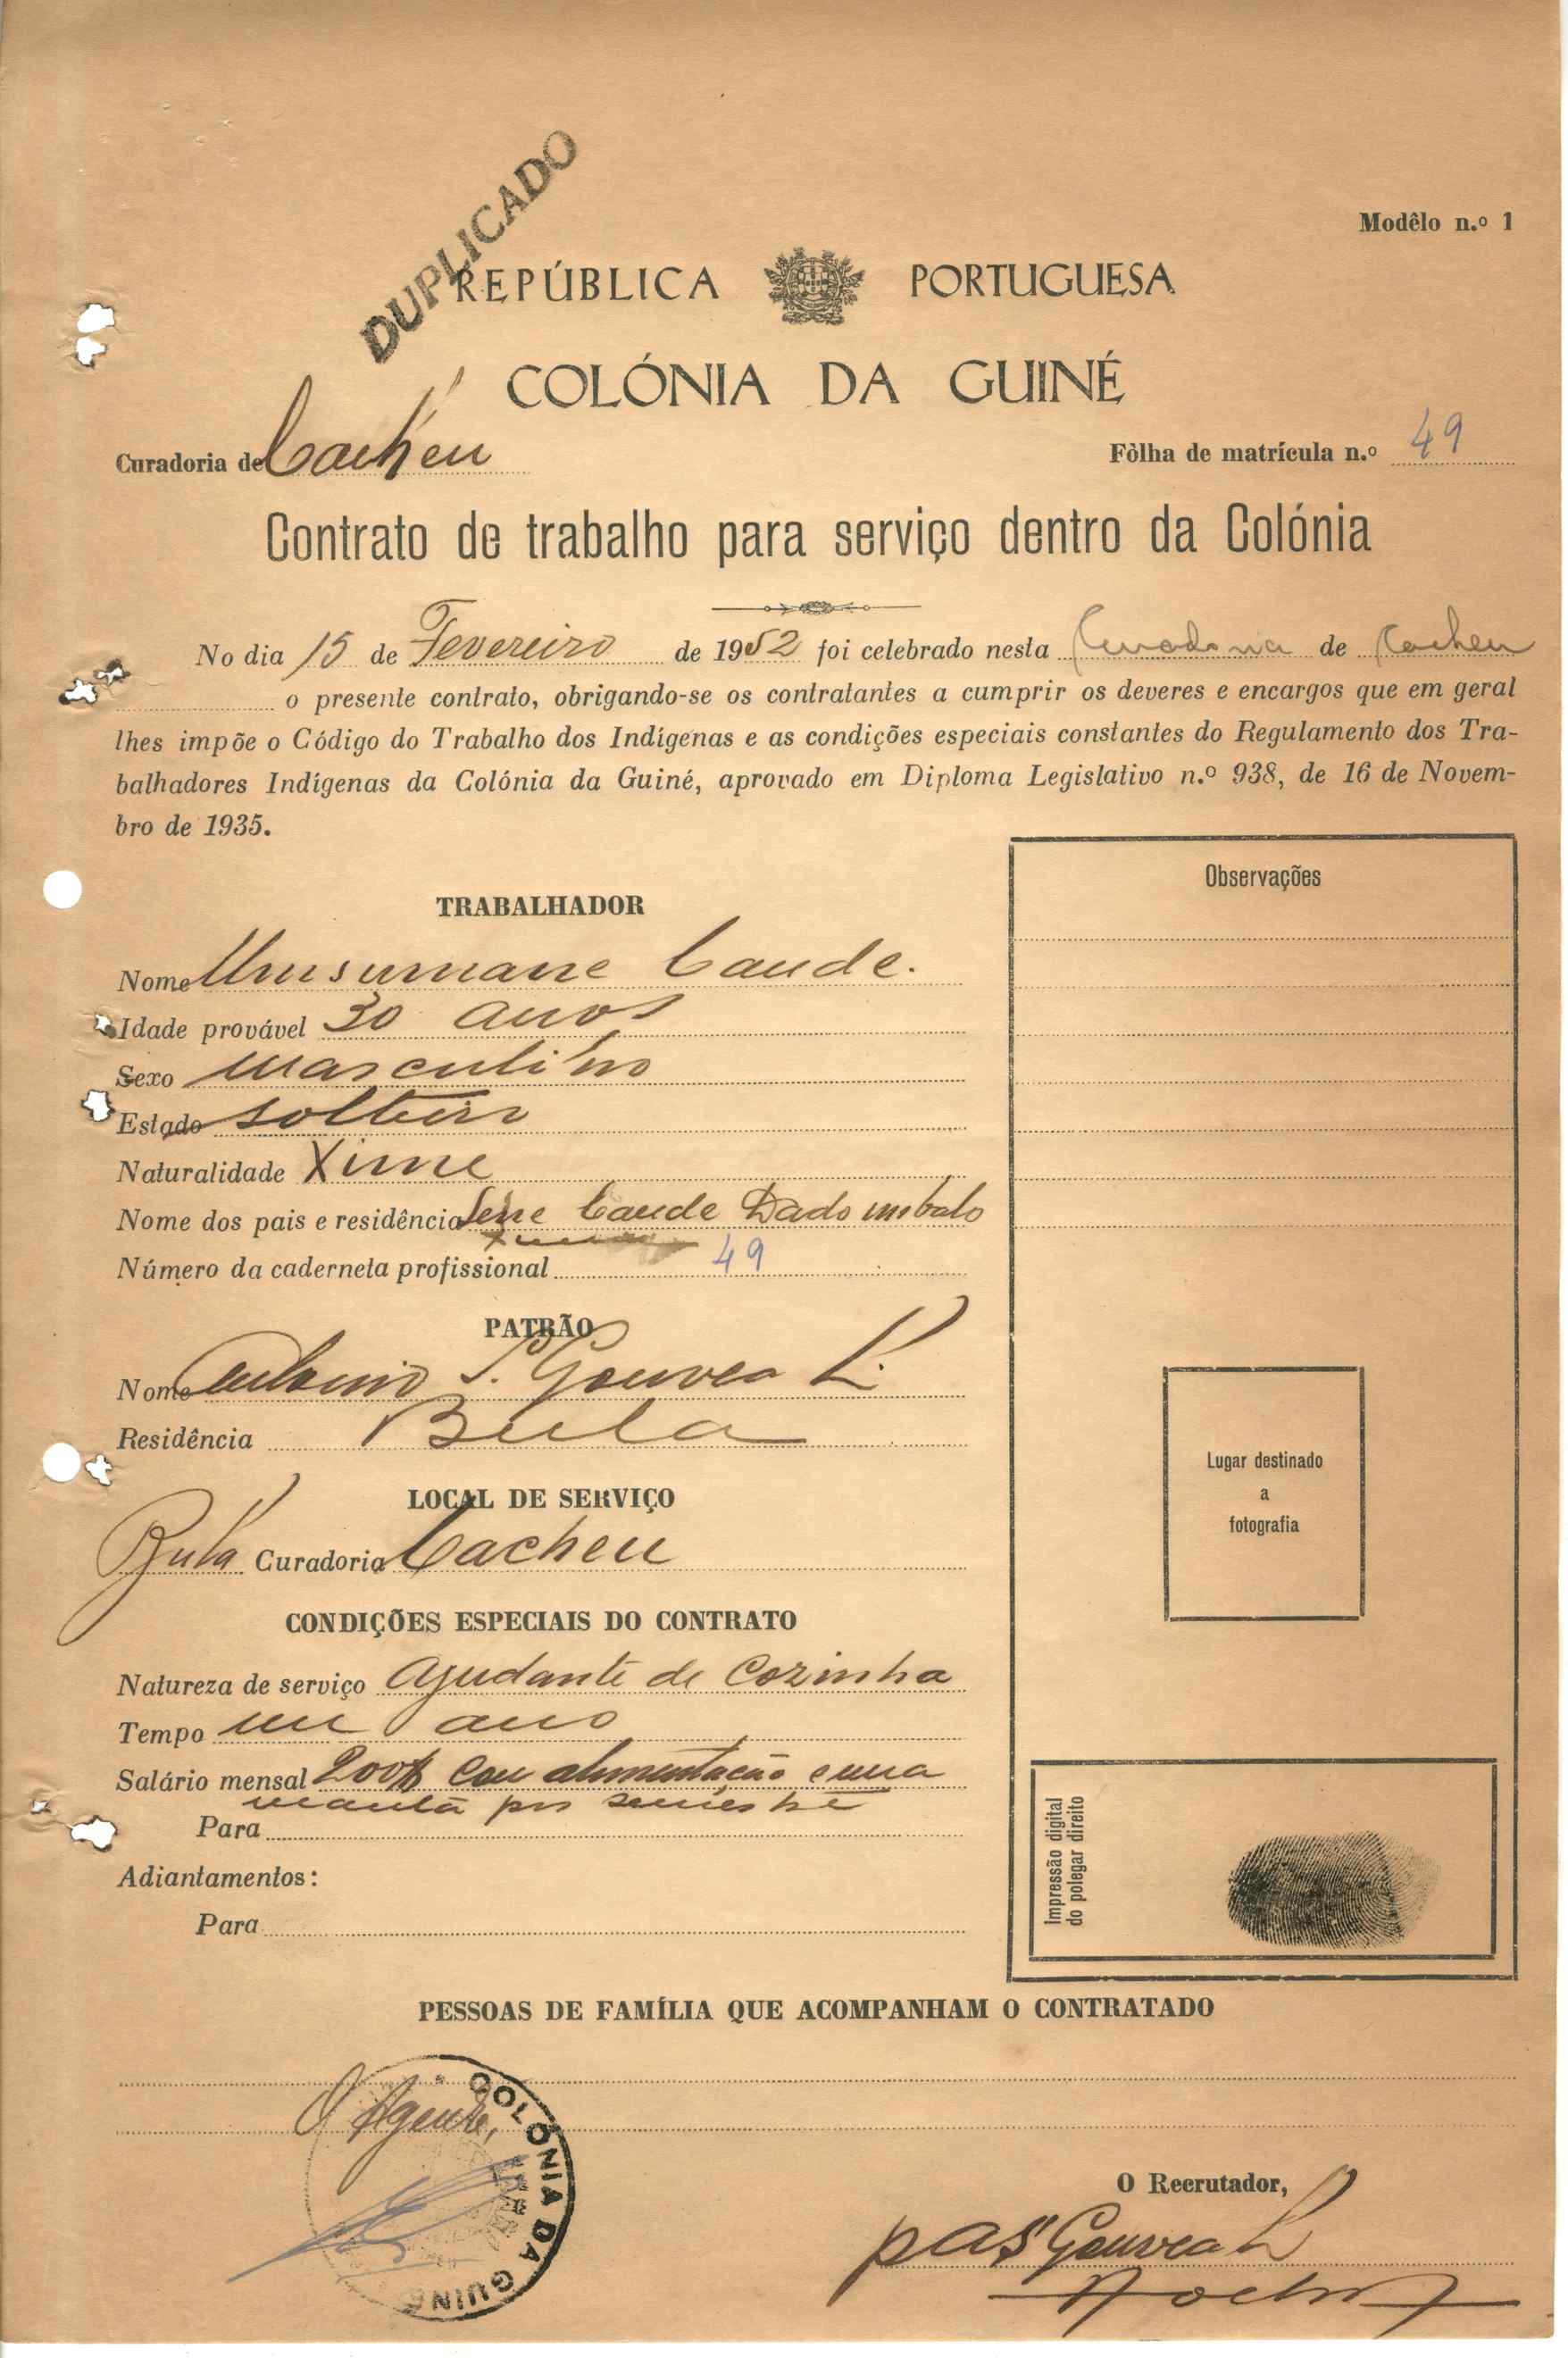 DUPLICADO
Modêlo n.º 1
REPÚBLICA PORTUGUESA
COLÓNIA DA GUINÉ
Curadoria de Cacheu
Fôlha de matrícula n.º 49
Contrato de trabalho para serviço dentro da Colónia
No dia 15 de Fevereiro de 1952 foi celebrado nesta Curadoria de Cacheu
o presente contrato, obrigando-se os contratantes a cumprir os deveres e encargos que em geral
lhes impõe o Código do Trabalho dos Indígenas e as condições especiais constantes do Regulamento dos Tra-
balhadores Indígenas da Colónia da Guiné, aprovado em Diploma Legislativo n.º 938, de 16 de Novem-
bro de 1935.
Observações
TRABALHADOR
Nome Camde.
Idade provável 30 anos
Sexo masculino
Estado solteiro
Naturalidade Xime
Nome dos pais e residência
Número da caderneta profissional 49
PATRÃO
Nome Antonio S. Gouvea L.
Residência Bula
Lugar destinado
a
fotografia
LOCAL DE SERVIÇO
Bula Curadoria Cacheu
CONDIÇÕES ESPECIAIS DO CONTRATO
Natureza de serviço Ajudante de Cozinha
Tempo um ano
Salário mensal 200$ com alimentação e uma
manta por semestre
Para
Adiantamentos:
Para
Impressão digital
do polegar direito
PESSOAS DE FAMÍLIA QUE ACOMPANHAM O CONTRATADO
O Agente,
COLÓNIA DA GUINÉ
O Recrutador,
pas Gouvea L